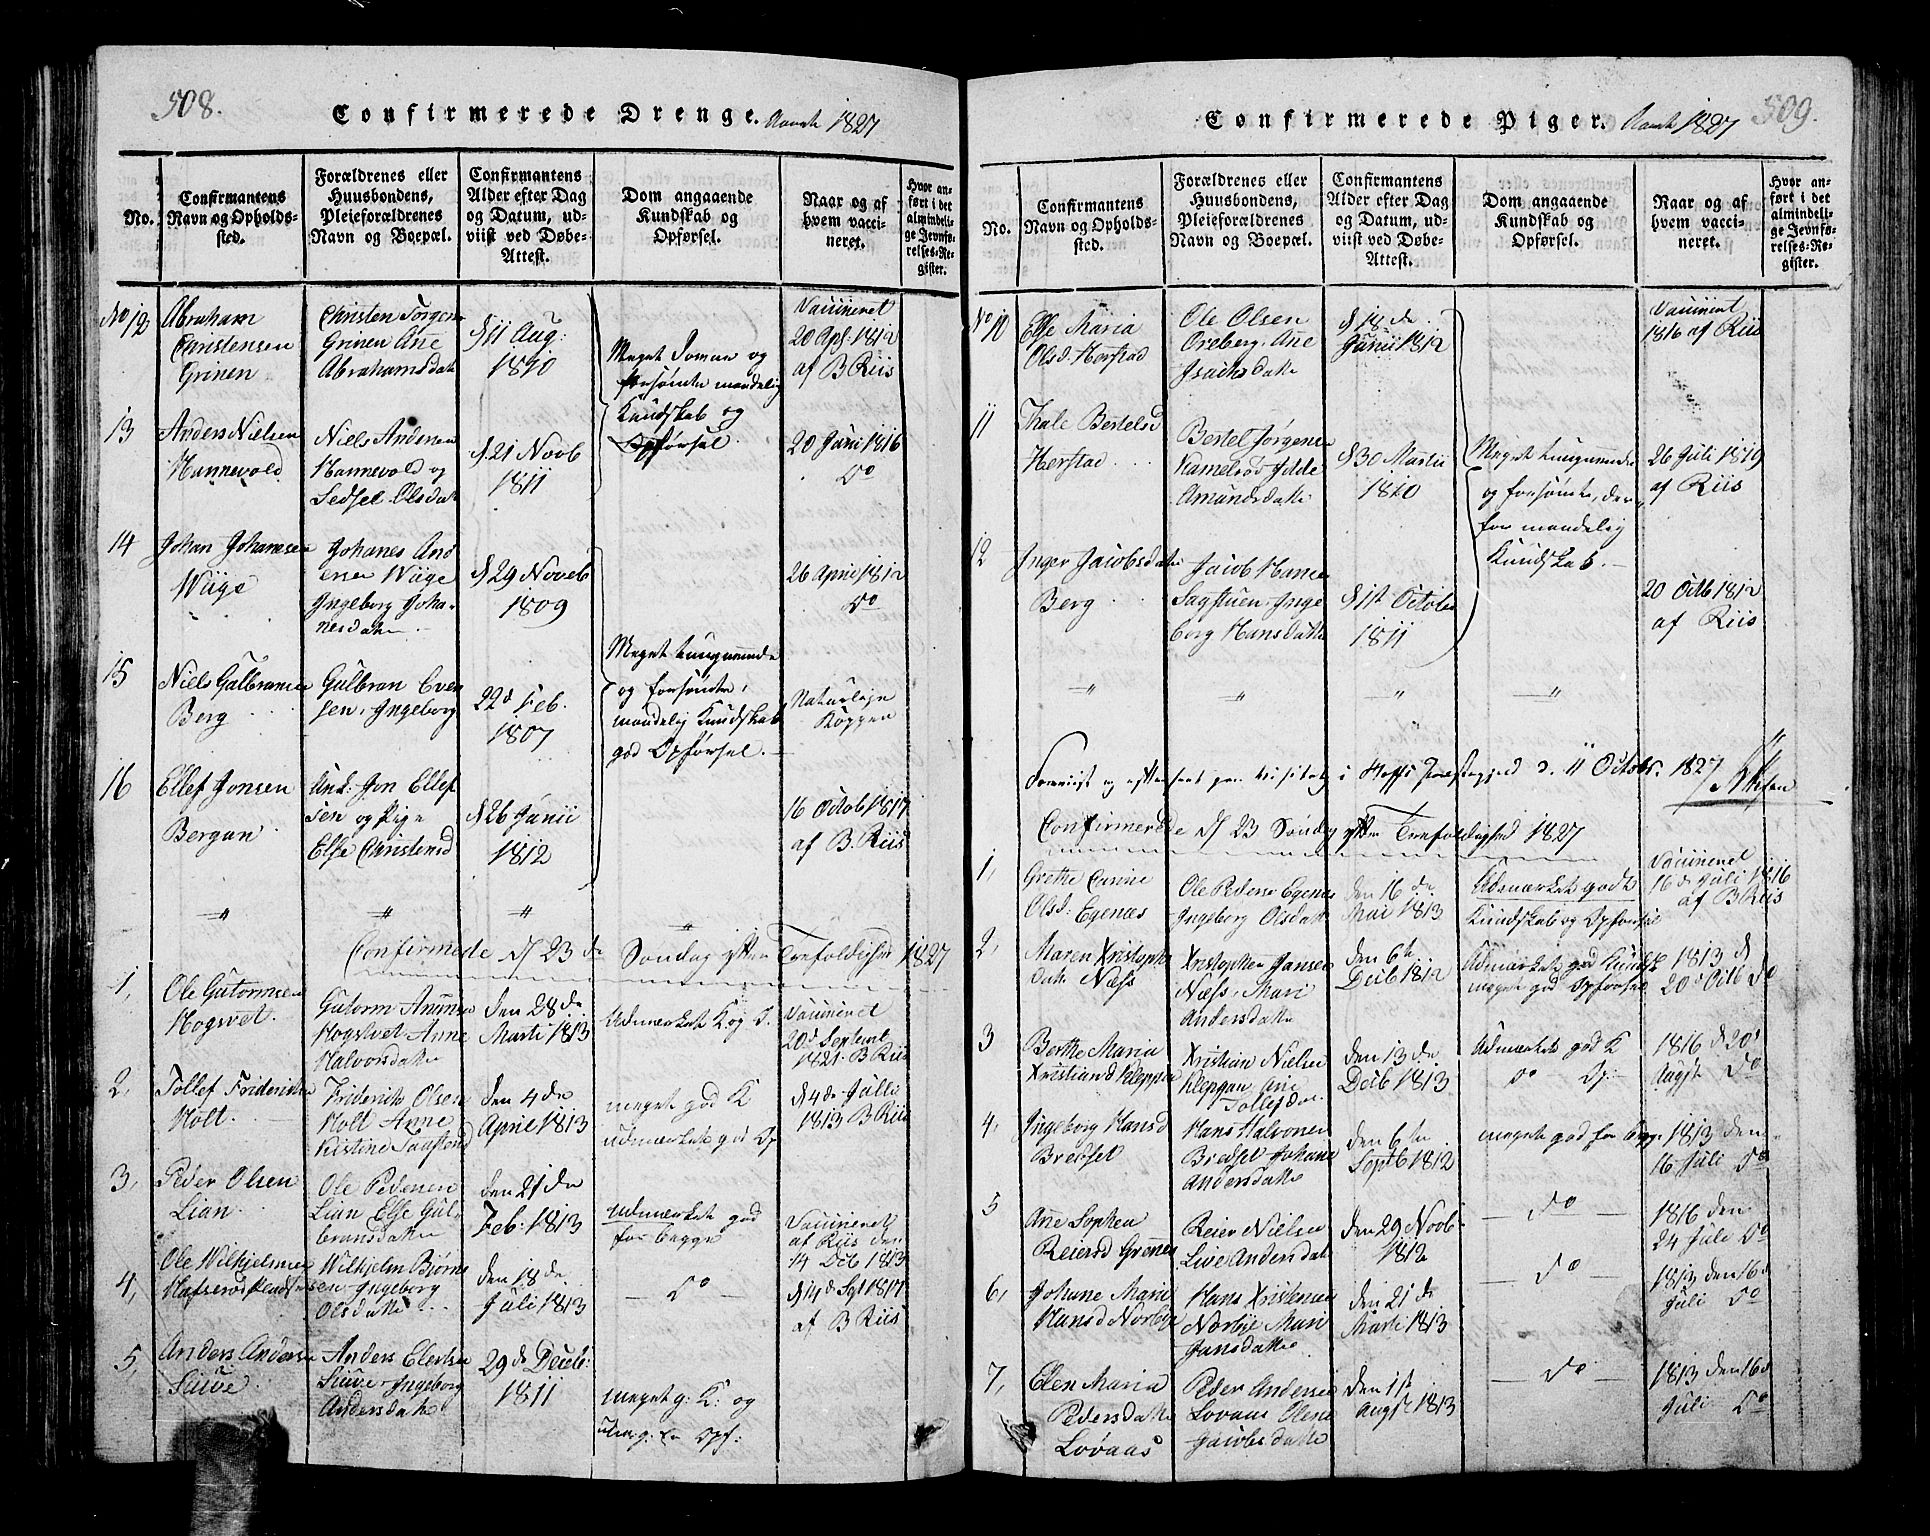 508.
Confirmerede Drenge. Aaret 1827
No.
Confirmantens Navn og Opholds-sted.
Forældrenes eller Huusbondens, Pleieforældrenes Navn og Boepæl.
Confirmantens Alder efter Dag og Datum, ud-viist ved Døbe-Attest.
Dom angaaende Kundskab og Opførsel.
Naar og af hvem vacci-neret.
Hvor an-ført i det almindeli-ge Jevnfø-relses-Re-gister.
No 12
Abraham
Christensen
Grinen
Christen Jørgens
Grinen Ane
Abrahamsdatt
d 11 Aug:
1810
og
Kundskab og
Opførsel.
Vaccineret
20 Apr: 1812
af B Riis
13
Anders Nielsen
Hannevold
Niels Andersen
Hannevold og
Sedsel Olsdatt
d. 21 Novb
1811
20 Juni 1816
Do
14
Johan Johansen
Wiige
Johanes And
ersen Wiige
Ingeborg Joha-
nesdatt
d 29 Noveb
1809
26 April 1812
Do
15
Niels Gulbransen
Berg
Gulbran Even
sen, Ingeborg
22d Feb.
1807
Meget
og forsømte,
maadelig Kundskab
god Opførsel.
Naturlige
Kopper
16
Ellef Jonsen
Bergan
Jon Ellef
sen og Pige
Else Christensd
d 26 Junii
1812
16 Octob 1817
af B. Riis
Confirmerede d 23 de Søndag efter Trefoldighed 1827
1,
Ole Gutormsen
Hogsvet
Gutorm Amun
Hogstvet Anne
Halvorsdatte
den 28 de
Marti 1813
Udmærket K og O.
Vaccineret
20d Septemb
1821. B Riis
2,
Tollef Fridericksen
Holt
Friderik Olsen
Holt Anne
Kistine
den 4 de
April 1813
meget god K
udmærket god Op
d 4 de Julli
1813 B Riis
3,
Peder Olsen
Lian.
Ole Pedersen
Lian Else Gul
bransdatte
den 21 de
Feb: 1813
Udmærket god
for begge
Vaccineret
af Riis den
14 Dcb 1813
4,
Ole Wilhjelmsen
Wilhjelm Bjørns
en Ingeborg
Olsdatte
den 18 de
Juli 1813
Do
d 14d Spt 1817
af B Riis
5,
Anders Andersen
Suve
Anders Elertsen
Suve, Ingeborg
Andersdatte
29 de Deceb:
1811
meget g: K: og
Opf:
509.
Confirmerede Piger. Aaret 1827
No.
Confirmantens Navn og Opholds-sted.
Forældrenes eller Huusbondens, Pleieforældrenes Navn og Boepæl.
Confirmantens Alder efter Dag og Datum, ud-viist ved Døbe-Attest.
Dom angaaende Kundskab og Opførsel.
Naar og af hvem vacci-neret.
Hvor an-ført i det almindeli-ge Jevnfø-relses-Re-gister.
No 10
Else Maria
Olsd. Herstad
Ole Olsen
Oreberg, Ane
Isaiksdatte
d 18 de
Junii 1812
Vaccineret
1816 af Riis
11
Thale Bertelsd
Herstad
Bertel Jørgens
Amundsdatte
d 30 Martii
1810
Meget
og forsømte, der
for maadelig
Kundskab.
26 Juli 1819
af Riis
12
Inger Jacobsdatte
Berg
Jacob Hanse
Sagstuen, Inge
borg Hansdatte
d 1st Octobr
1811
20 Octb 1812
af Riis
Foreviist og efterseet paa Visitats i Hoffs Præstegjeld d. 11 Octobr. 1827
Confirmerede d 23 Søndag efter Trefoldighed 1827
1,
Grethe
Olsd: Egenæs
Ole Pederse Egenæs
Ingeborg Olsdatte
den 16 de
Mai 1813
Udmærket godt
Kundskab og Opførsel
Vaccineret
16 d Juli 1816
af B Riis
2,
Maren Xristophe
datt. Næss
Xristopher Janse
Næss, Mari
Andersdatte
den 6te
Decb 1812
Udmærket god Kundsk
meget god Opførsel
1813 d
20d Octb Do
3
Berthe Maria
Xristiansd Kleppen
Xristian Nielse
Klepgan Ane
Tollefsdtr
den 13 de
Decb 1813
Udmærket god K
Do Op:
1816 d 20d
Augst Do
4,
Ingeborg Hansd
Bredset
Hans Halvorse
Bredset Johane
Andersdatte
den 6te
Septb 1812
meget god for begge
1813 den
16 Juli Do
5
Ane Sophea
Reiersd Grønnes
Reier Nielse
Live Andersdat
den 29 Novb
1812
Do
1816 den
24 Juli Do
6,
Johane Marie
Hansd Norbye
Hans Xristense
Norbye Mari
Jansdatte
den 21 de
Marti 1813
Do
1813 den 16d
Juli Do
7,
Elen Maria
Pedersdatte
Lovaas
Peder Anderse
Lovaas Olene
Jacobsdatte
den 1st
Augst 1813
Do
1813 den 16d
Juli Do